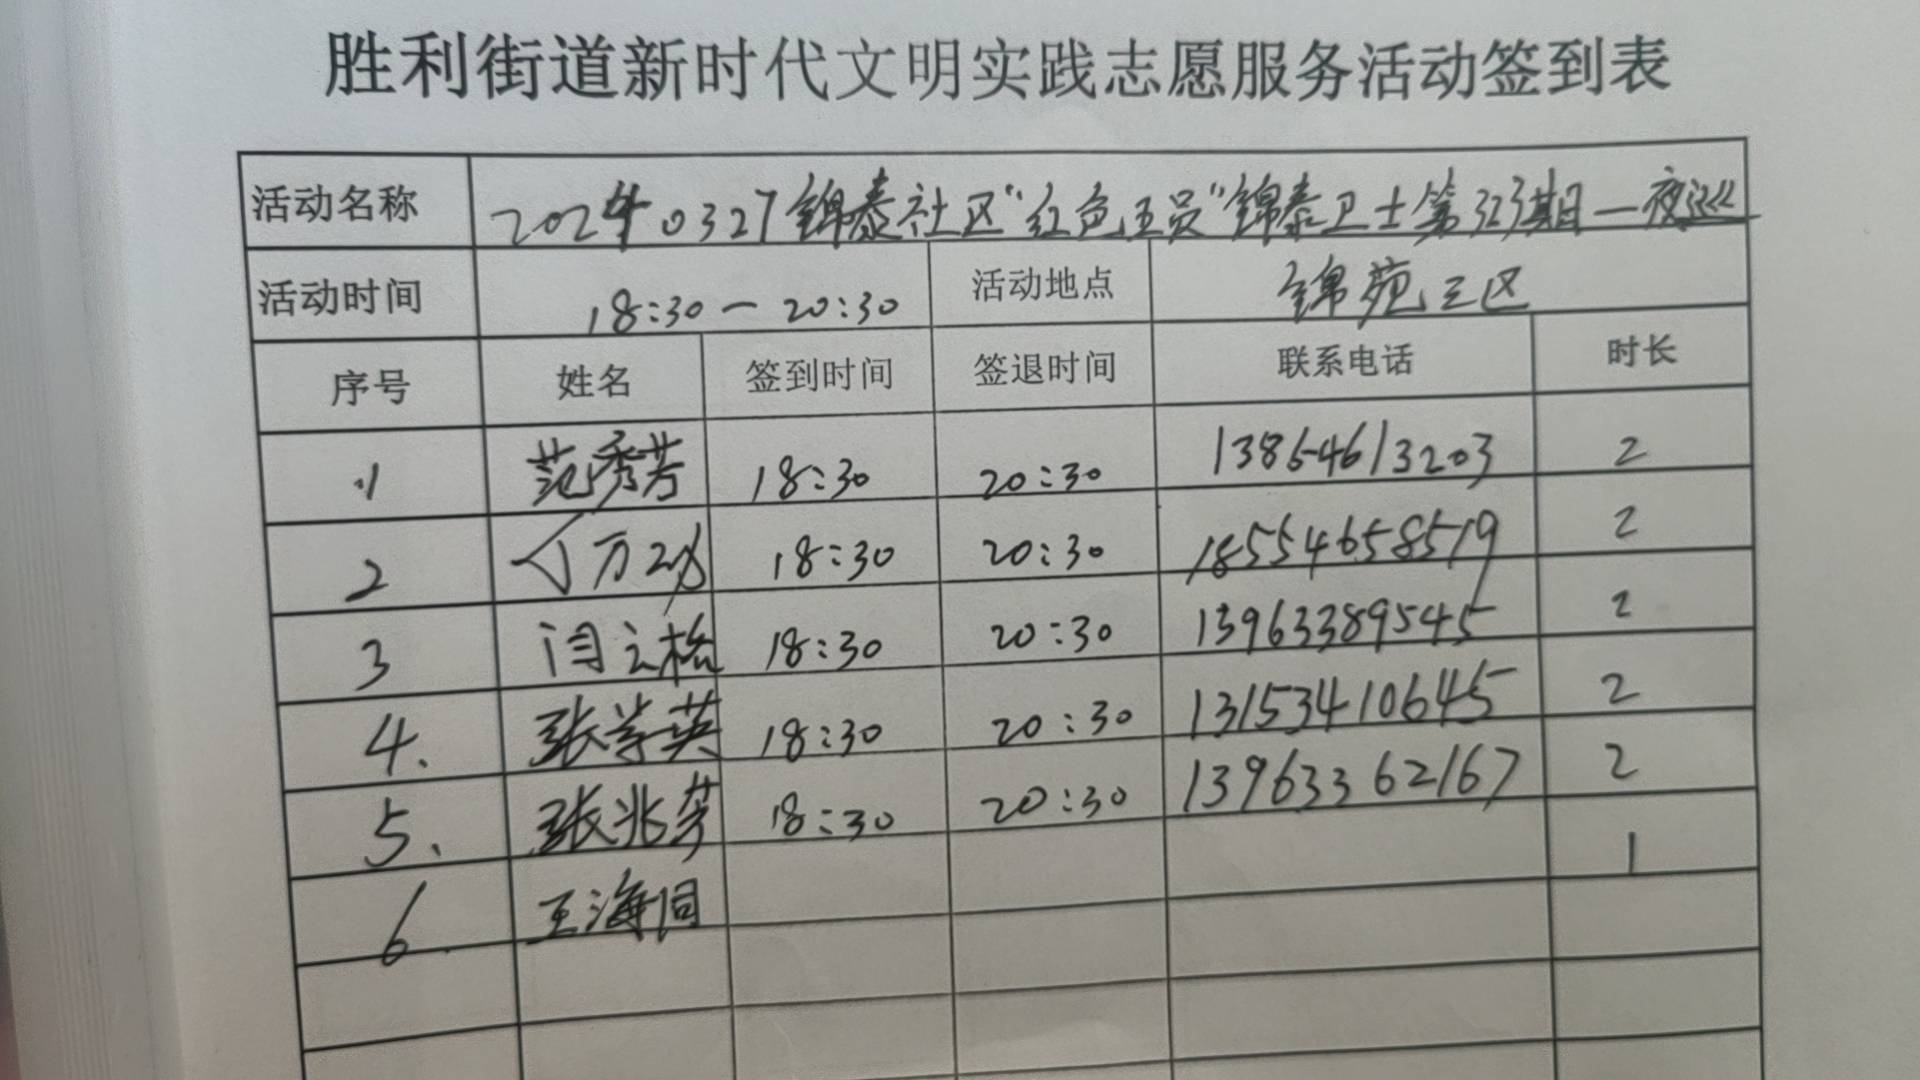 胜利街道新时代文明实践志愿服务活动签到表
活动名称 20240327锦泰社区“红色五员”锦泰卫士第323期日一夜巡
活动时间 18:30一20:30 活动地点 锦苑三区
序号 姓名 签到时间 签退时间 联系电话 时长
1 范秀芳 18:30 20:30 13864613203 2
2 18:30 20:30 18554658519 2
3 闫立格 18:30 20:30 13963389545 2
4. 张学英 18:30 20:30 13153410645 2
5. 张兆芳 18:30 20:30 13963362167 2
6 王海同 1